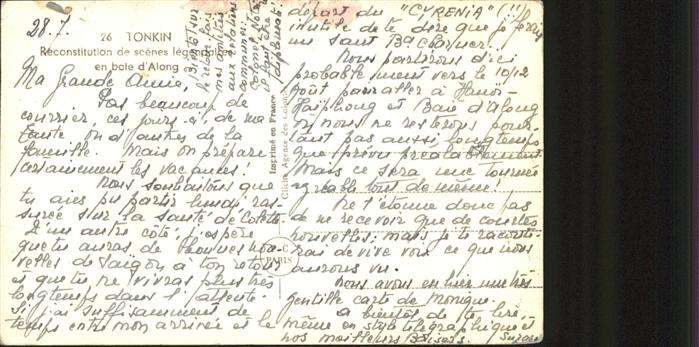 28.7.
26 TONKIN
Réconstitution de scènes légendaires
en baie d'Along
Ma Grande Amie,
Pas beaucoup de
courrier, ces jours-ci, de ma
tante ou d'autres de la
famille. Mais on prépare
certainement les vacances!
Nous souhaitons que
tu aies pu partir lundi, ras-
surée sur la santé de Colette.
D'un autre côté, j'espère
que tu auras de bonnes nou-
velles de Saïgon à ton retour
et que tu ne vivras plus très
longtemps dans l'attente.
Si j'ai suffisamment de
temps entre mon arrivée et le
départ du "CYRENIA" (!!!)
inutile de te dire que je ferai
un saut Bd Charner!
Nous partirons d'ici
probablement vers le 10/12
août pour aller à Hanoï-
Haïphong et Baie d'Along
où nous ne resterons pour-
tant pas aussi longtemps
que prévu préalablement.
Mais ce sera une tournée
agréable tout de même!
Ne t'étonne donc pas
de ne recevoir que de courtes
nouvelles; mais je te raconte-
rai de vive voix ce que nous
aurons vu.
Nous avons eu hier une très
gentille carte de Monique.
A bientôt de te lire,
même en style télégraphique et
nos meilleurs Baisers.
Imprimé en France
PARIS